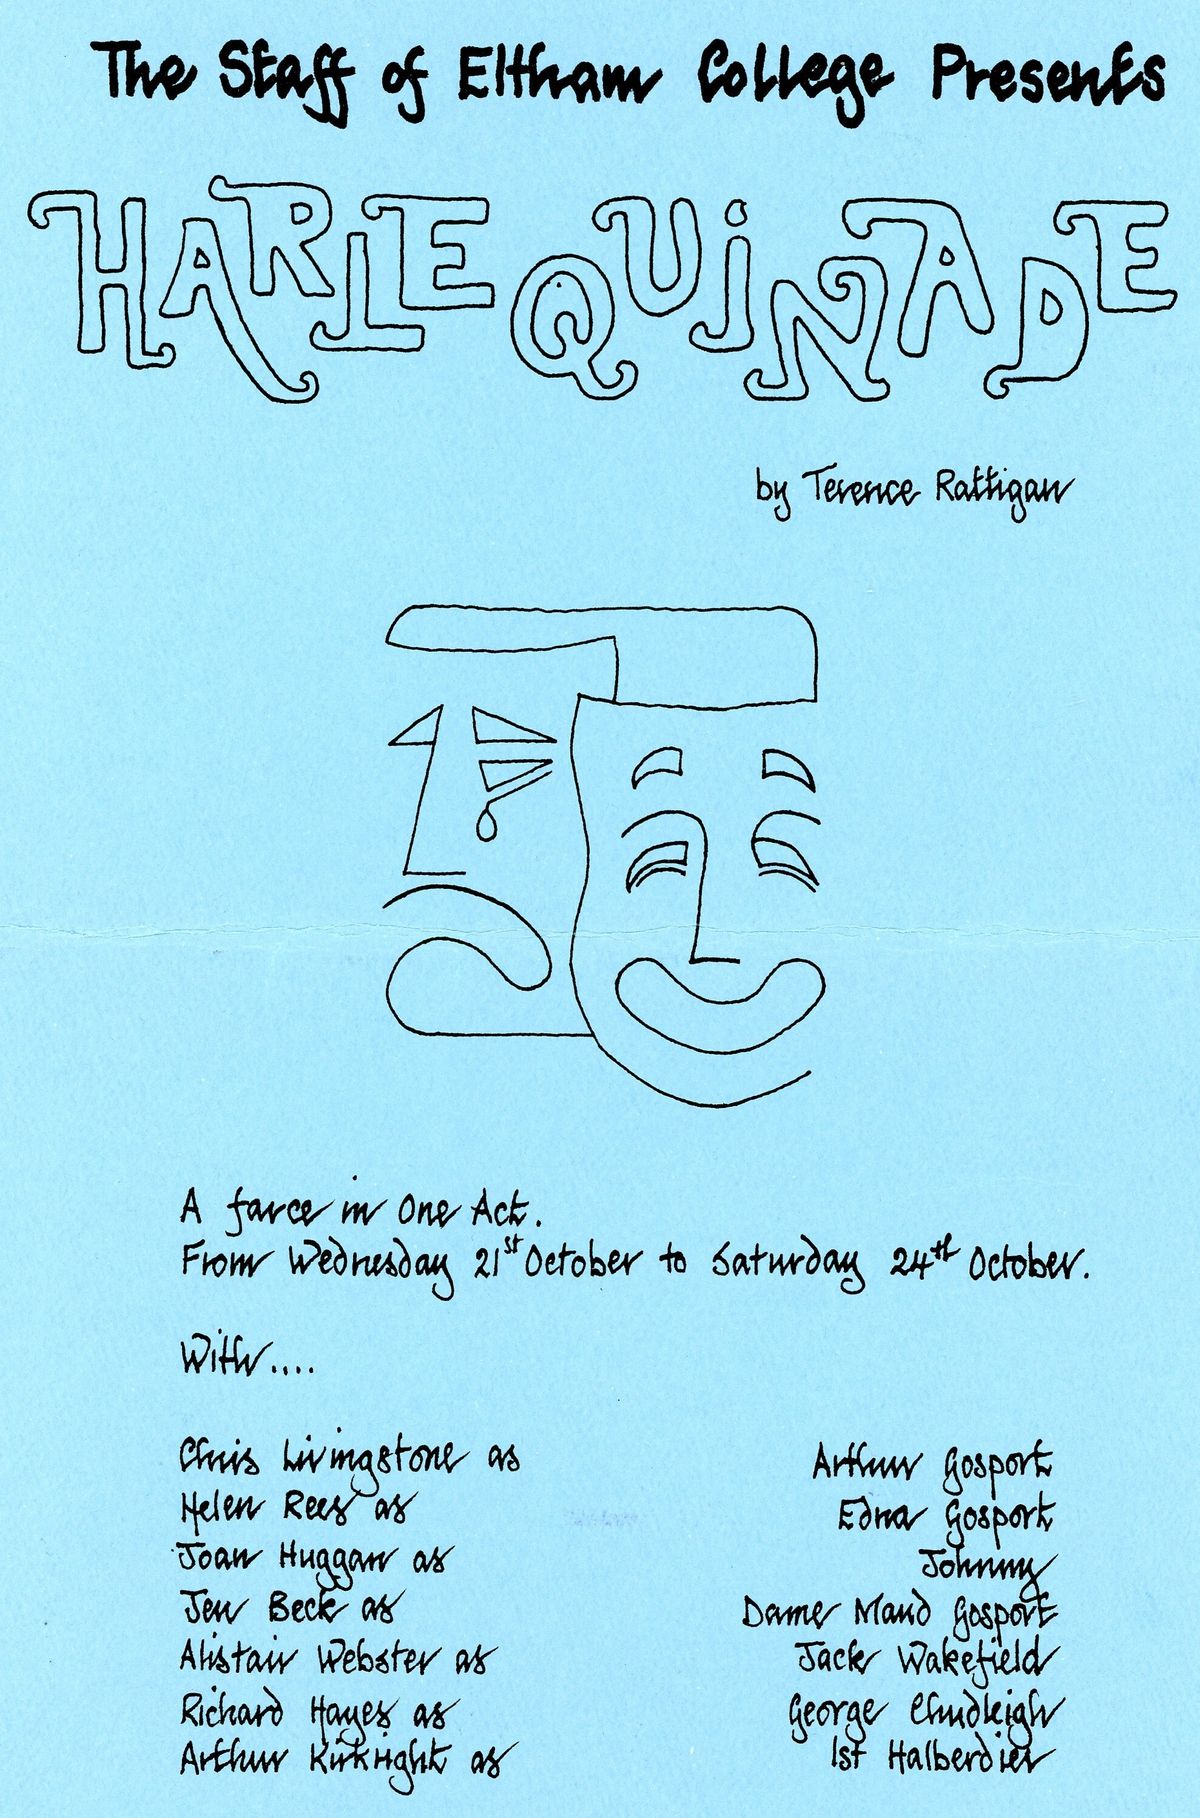 The Staff of Eltham College Presents
HARLEQUiNADE
by Terence Rattigan
A farce in One Act.
From Wednesday 21st October to Saturday 24th October.
With....
Chris Livingstone as Arthur Gosport
Helen Rees as Edna Gosport
Joan Huggan as Johnny
Jen Beck as Dame Maud Gosport
Alistair Webster as Jack Wakefield
Richard Hayes as George Chudleigh
Arthur Kirkright as 1st Halberdier